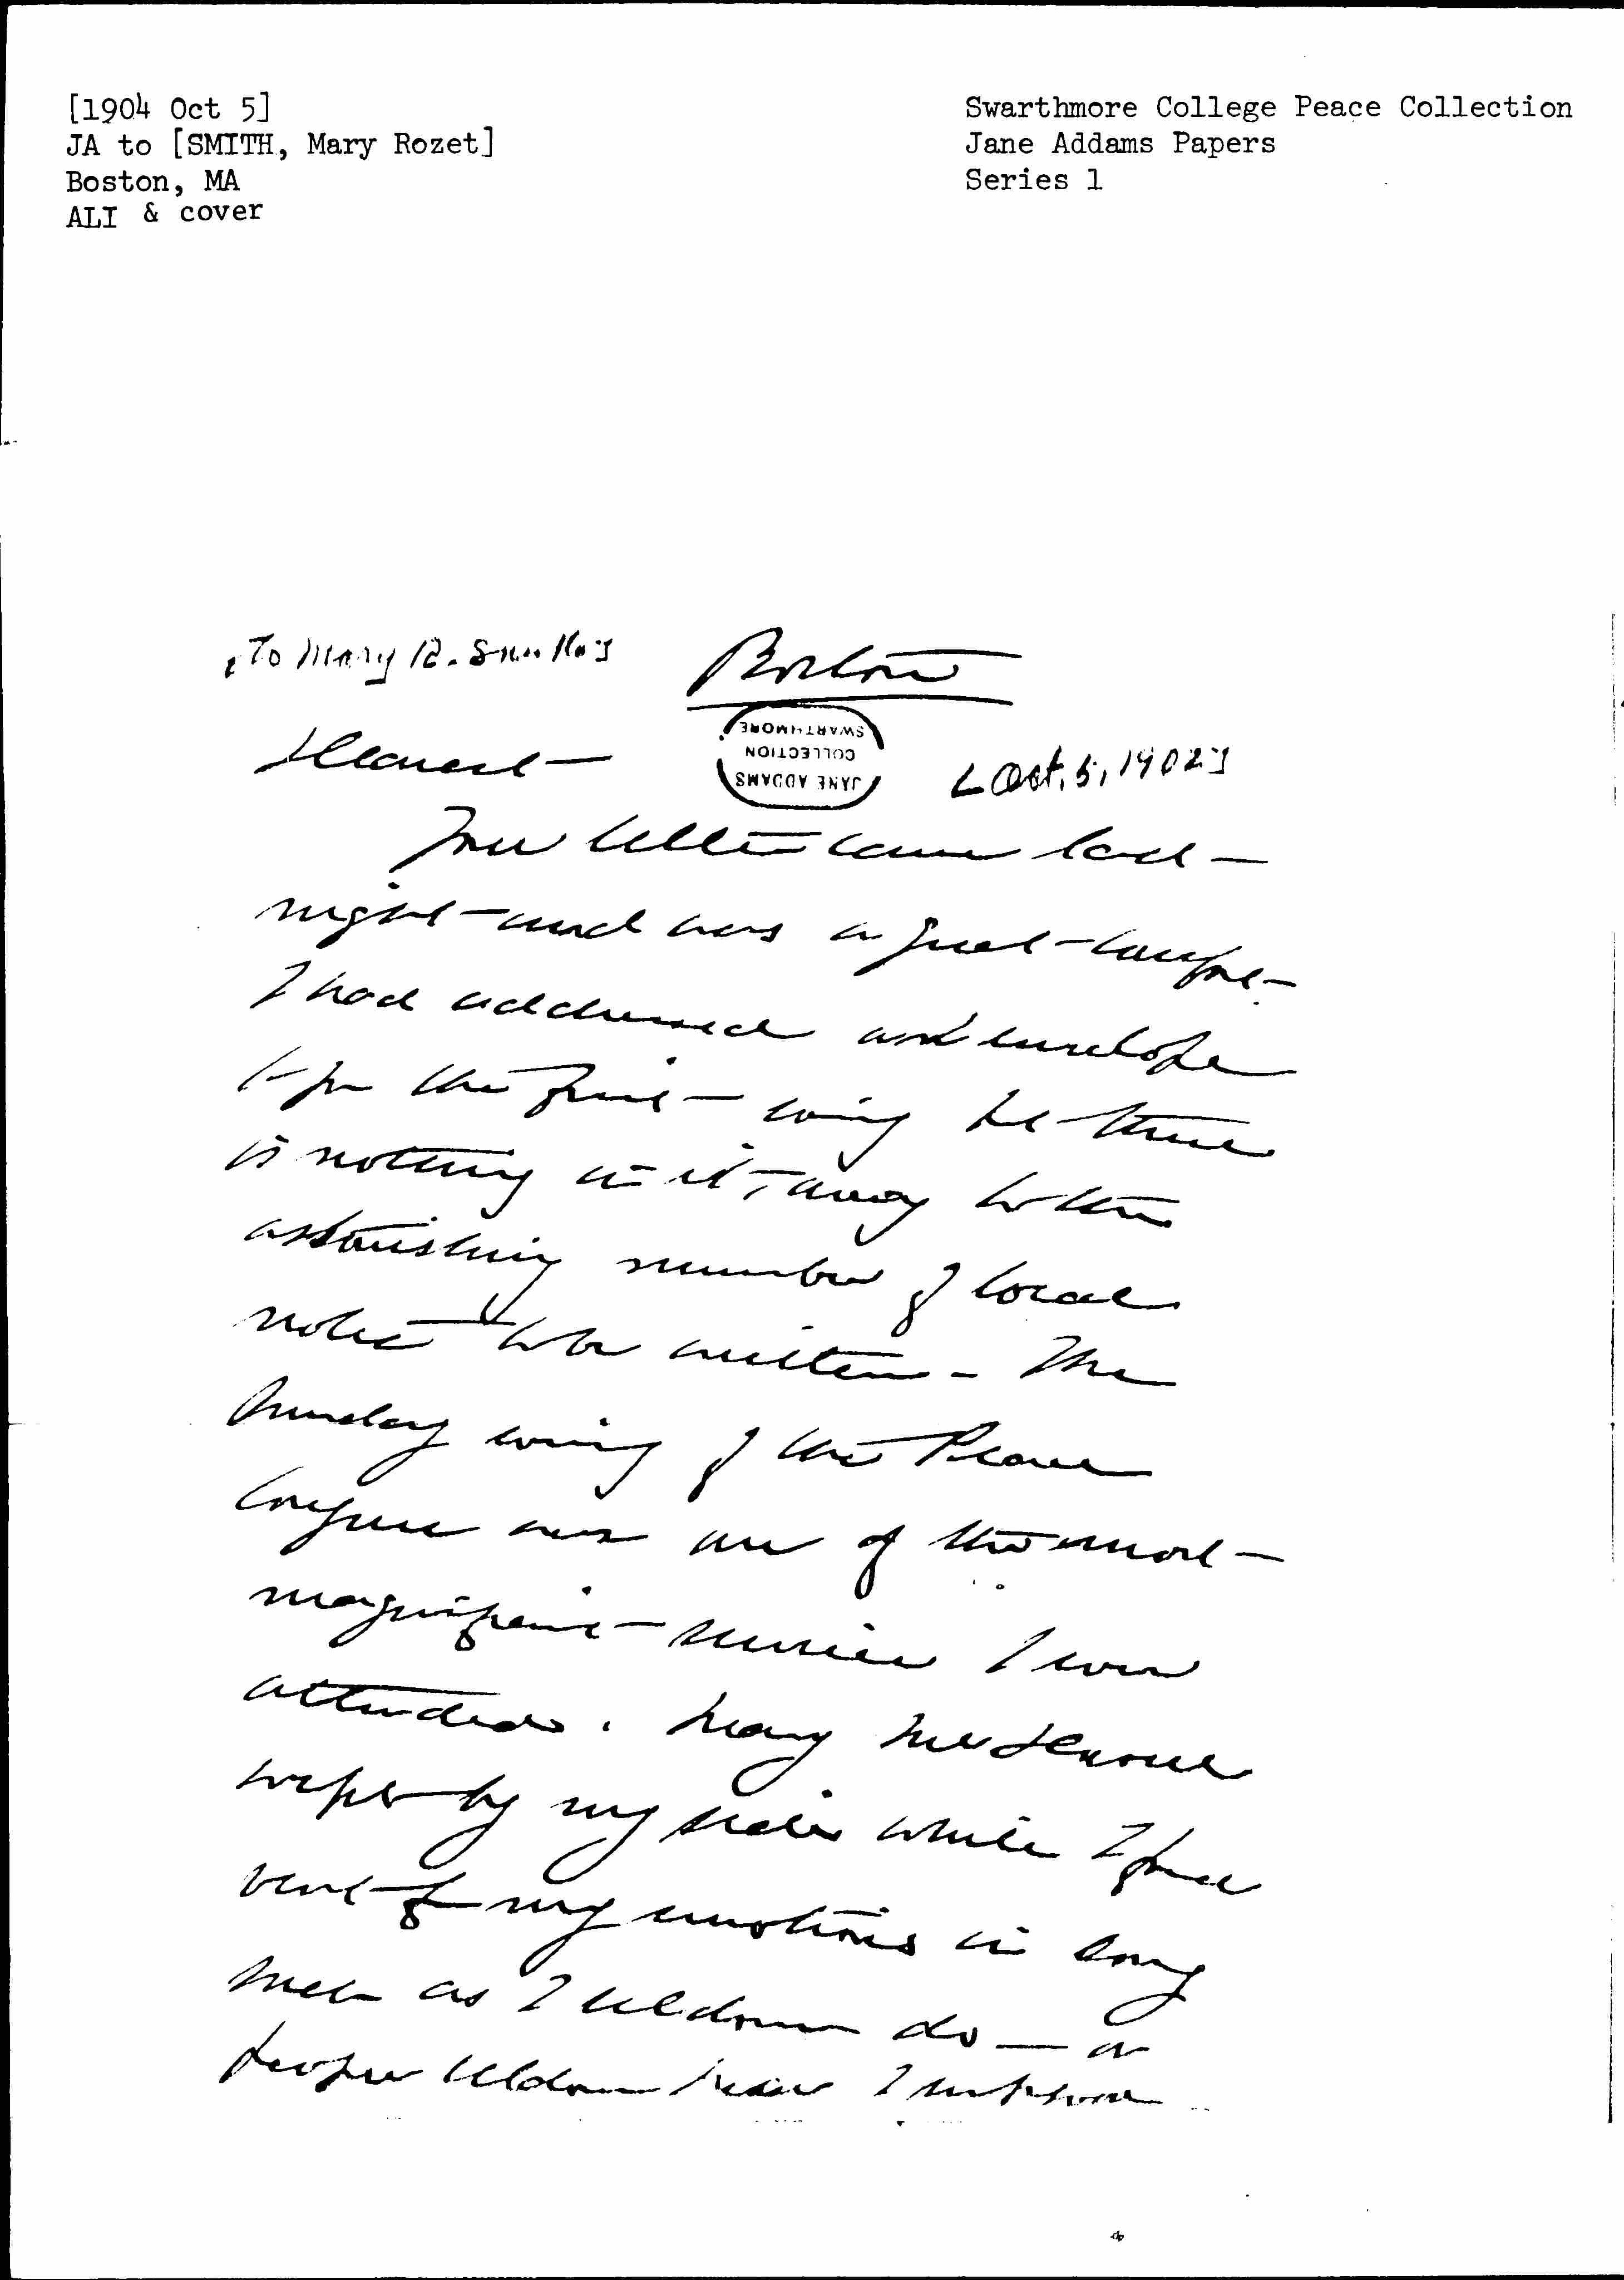 [1904 Oct 5]
JA to [SMITH, Mary Rozet]
Boston, MA
ALI & cover
Swarthmore College Peace Collection
Jane Addams Papers
Series 1
[To Mary R. Smith]
Boston
SWARTHMORE
COLLECTION
JANE ADDAMS
Dearest —
[Oct. 5, 1902]
Your letter came last
night and was a great comfort
I had addressed and envelope
to you the first evening but there
is nothing in it, owing to the
astonishing number of local
notes to be written - The
Sunday evening of the Peace
Congress was one of the most
magnificent services I ever
attended. Mary
wept by my side while I gave
vent to my emotions in
as I seldom do — or
people seldom I suppose